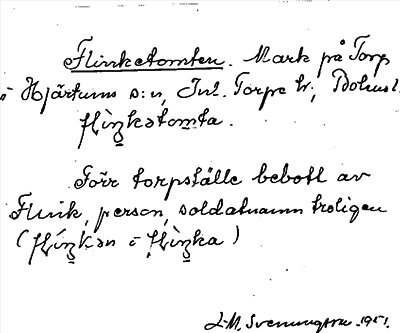 Flinketomten. Mark på Torp
i Hjärtums s:n, Inl. Torpe hd, Bohusl.
flìŋkətom̥ta.
Förr torpställe bebott av
Flink, person, soldatnamn troligen
(flíŋkən i flìŋka)
L.M. Svenungsson 1951.